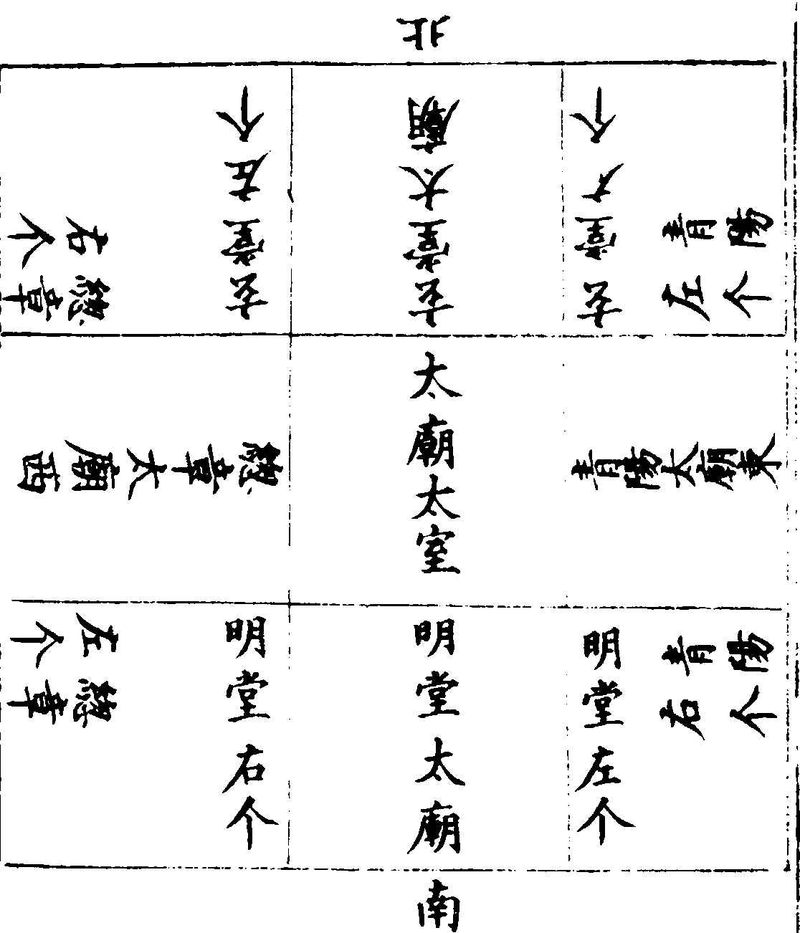 北
玄堂左个
玄堂大廟
玄堂个
總章右个
青陽左个
總章大廟西
太廟太室
青陽太廟東
總章左个
明堂右个
明堂太廟
明堂左个
青陽右个
南